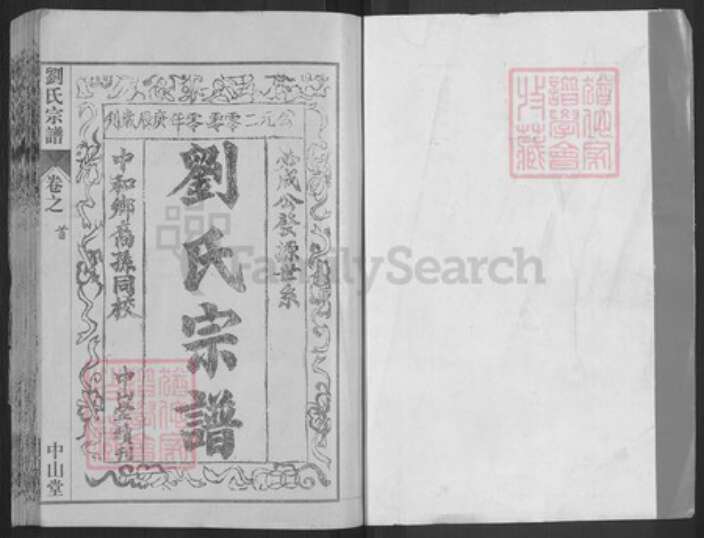 公元二零零零年庚辰歲刊
志成公發源世系
劉氏宗譜
中和鄉裔孫同校
中山堂績刊
劉氏宗譜
卷之
首
中山堂
FamilySearch
譜學會
收藏